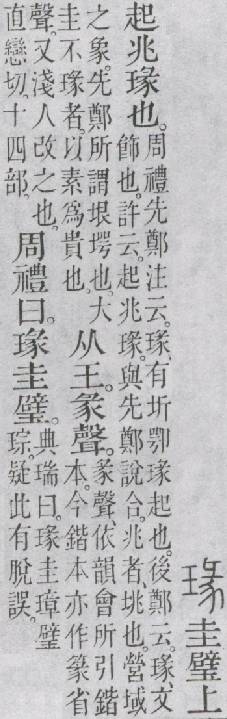 瑑 圭璧上
起兆瑑也。
周禮先鄭注云。瑑、有圻鄂瑑起也。後鄭云。瑑、文
飾也。許云。起兆瑑。與先鄭說合。兆者垗也。營域
之象。先鄭所謂垠堮也。大
圭不瑑者。以素爲貴也。
从王。彖聲。
彖聲、依韻會所引鍇
本。今鍇本亦作篆省
聲。又淺人改之也。
直戀切。十四部。
周禮曰。瑑圭璧。
典瑞曰。瑑圭璋璧
琮。疑此有脫誤。